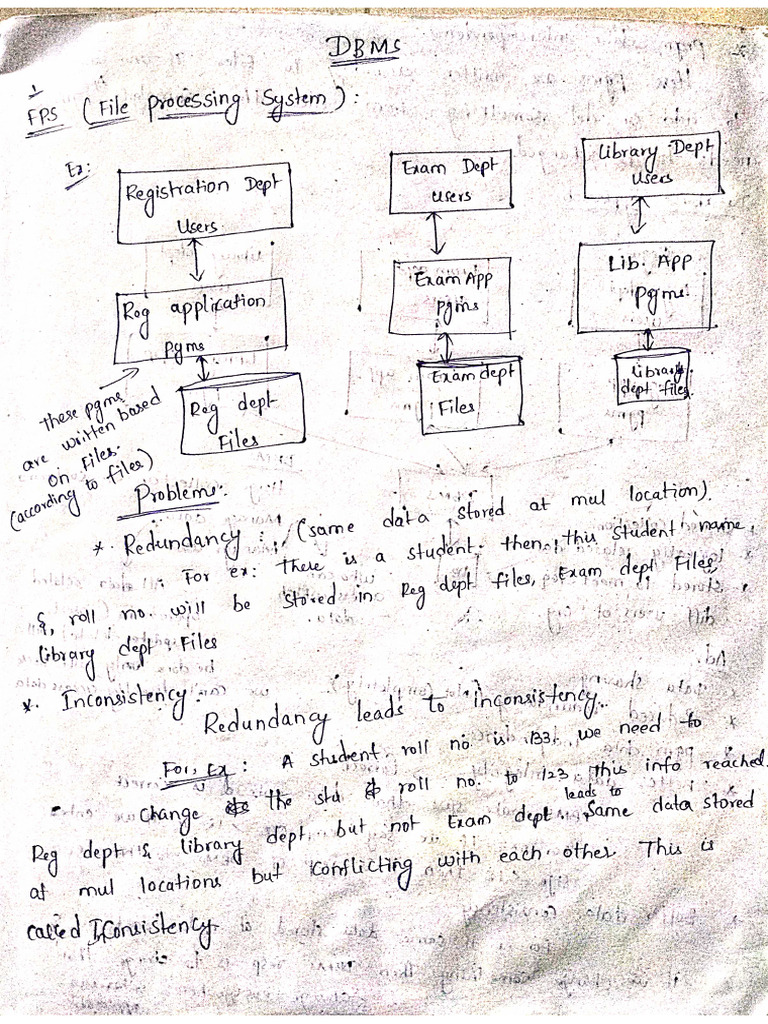 DBMS
1
FPS (File Processing System):
Ex:
Registration Dept
Users
Exam Dept
Users
Library Dept
Users
Reg application
Pgms
Exam App
Pgms
Lib. App
Pgms
Reg dept
Files
Exam dept
Files
Library
dept files
these pgms
are written based
on Files.
(according to files)
Problems:
*. Redundancy: (same data stored at mul location).
For ex: there is a student. then, this student name,
&, roll no. will be stored in Reg dept files, Exam dept Files
library dept. Files
*. Inconsistency:
Redundancy leads to inconsistency.
For, Ex: A student roll no is 133, we need to
change the stu roll no. to 123, this info reached.
Reg dept & library dept, but not Exam dept, leads to same data stored
at mul locations but conflicting with each other This is
called Inconsistency